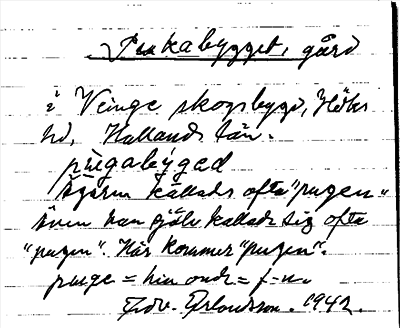 Puskabygget, gård
i Veinge skogsbygd, Höks
hd, Hallands län.
pùgabýged
Ägaren kallads ofta "pugen"
även han själv kallade sig ofta
"pugen". Här kommer "pugen".
puge = hin onde = f-n.
Edv. 1942.